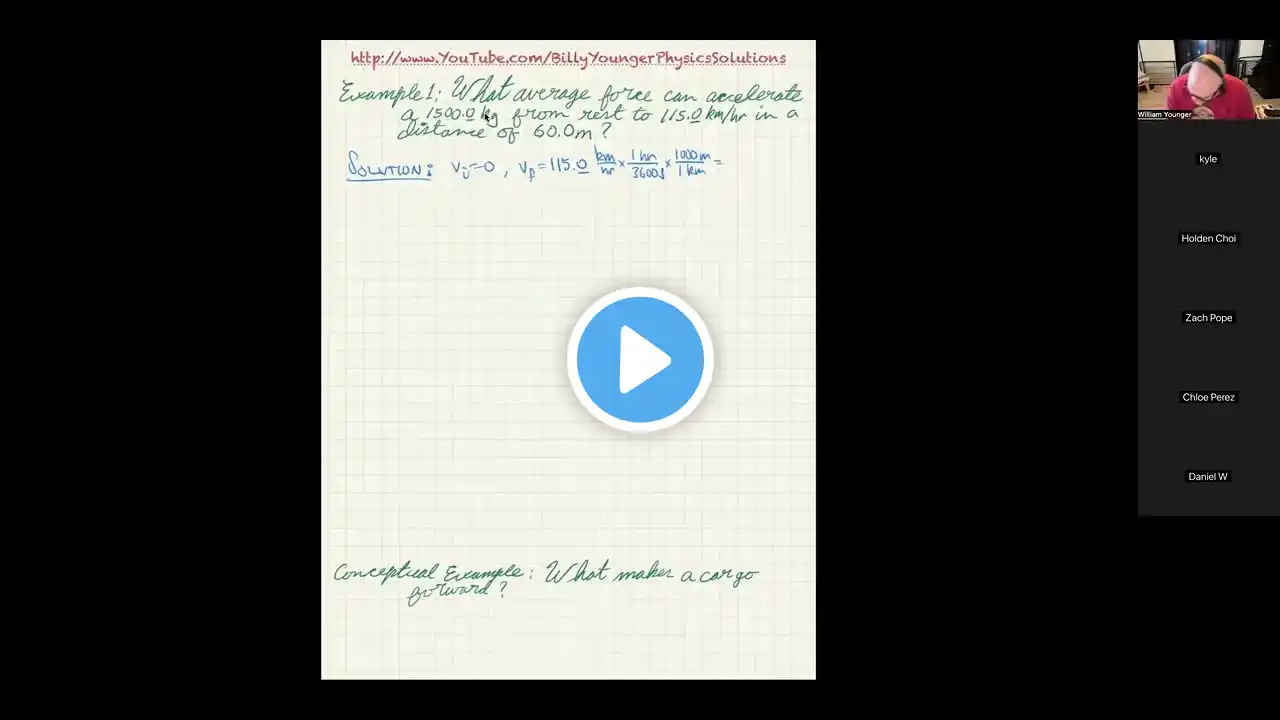 http://www.YouTube.com/BillyYoungerPhysicsSolutions
Example 1: What average force can accelerate
a 1500.0 kg from rest to 115.0 km/hr in a
distance of 60.0m ?
SOLUTION: vᵢ=0 , v_f = 115.0 km/hr × 1 hr/3600s × 1000m/1 km =
Conceptual Example: What makes a car go
forward ?
William Younger
kyle
Holden Choi
Zach Pope
Chloe Perez
Daniel W